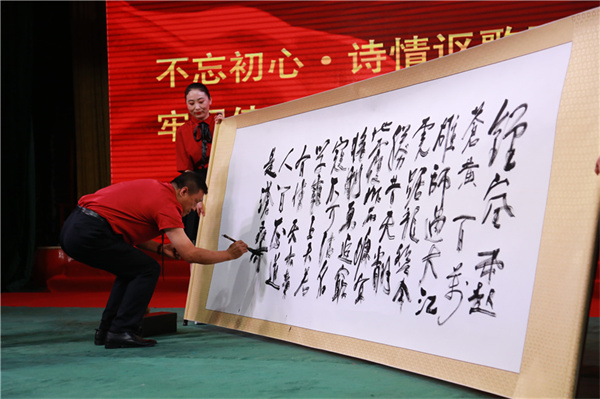 不忘初心·诗情讴歌
牢
鍾山風雨起
蒼黄百萬
雄師過大江
虎踞龍盤今
勝昔天翻
地覆慨而慷宜
將剩勇追窮
寇不可沽名
學霸王天若
有情天亦老
人间正道
是滄桑